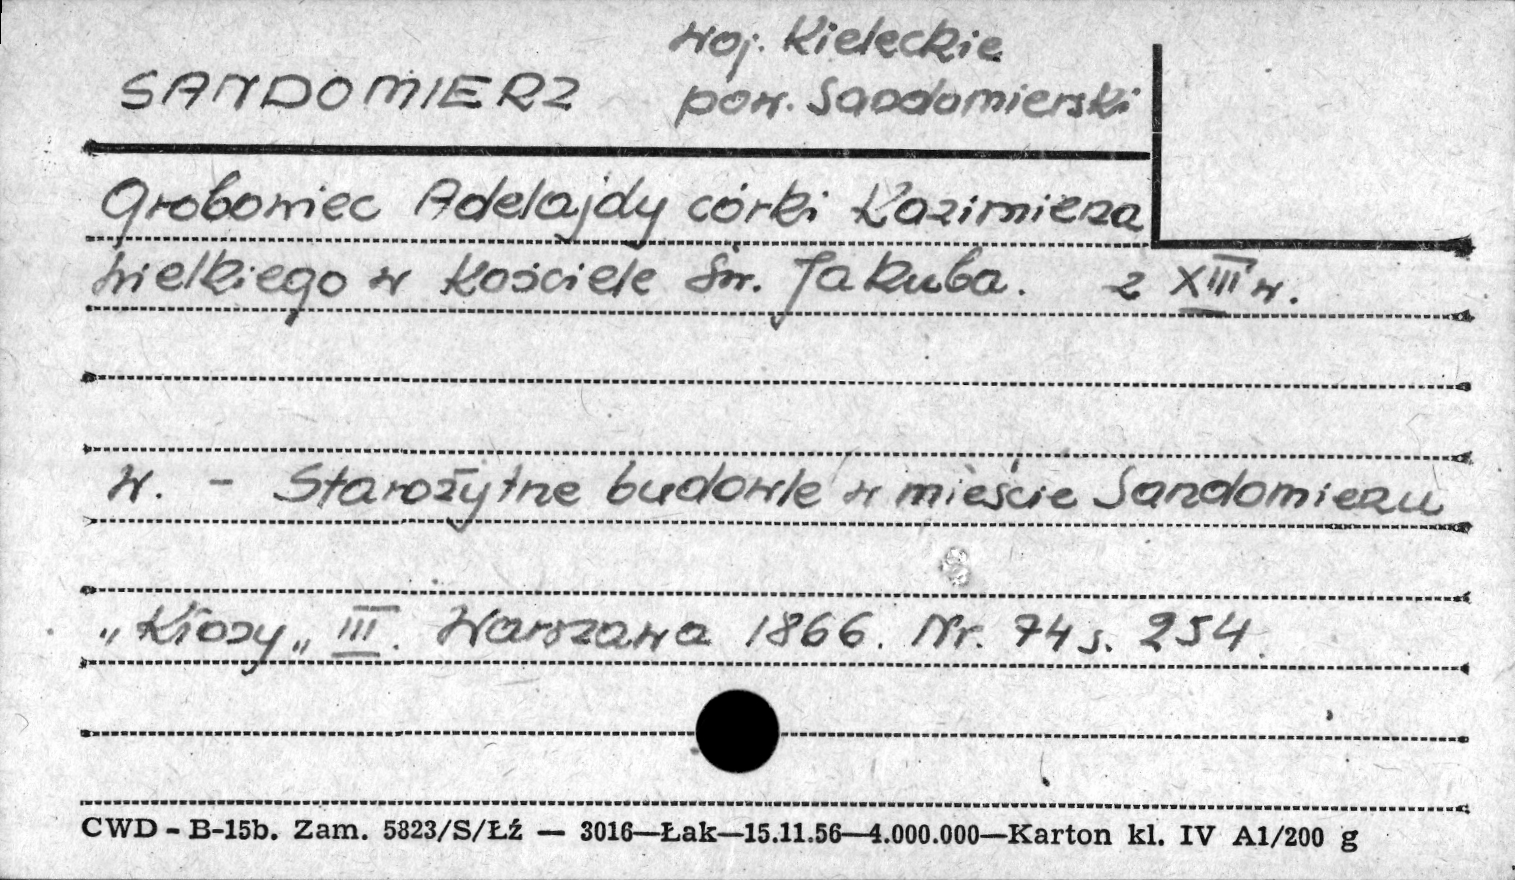 woj. Kieleckie
SANDOMIERZ pow. Sandomierski
Grobowiec Adelajdy córki Kazimierza
Wielkiego w Kościele Św. Jakuba. z XIII w.
W. - Starożytne budowle w mieście Sandomierzu
„Kłosy„ III. Warszawa 1866. Nr. 74 s. 254.
CWD - B-15b. Zam. 5823/S/Łź — 3016—Łak—15.11.56—4.000.000—Karton kl. IV A1/200 g